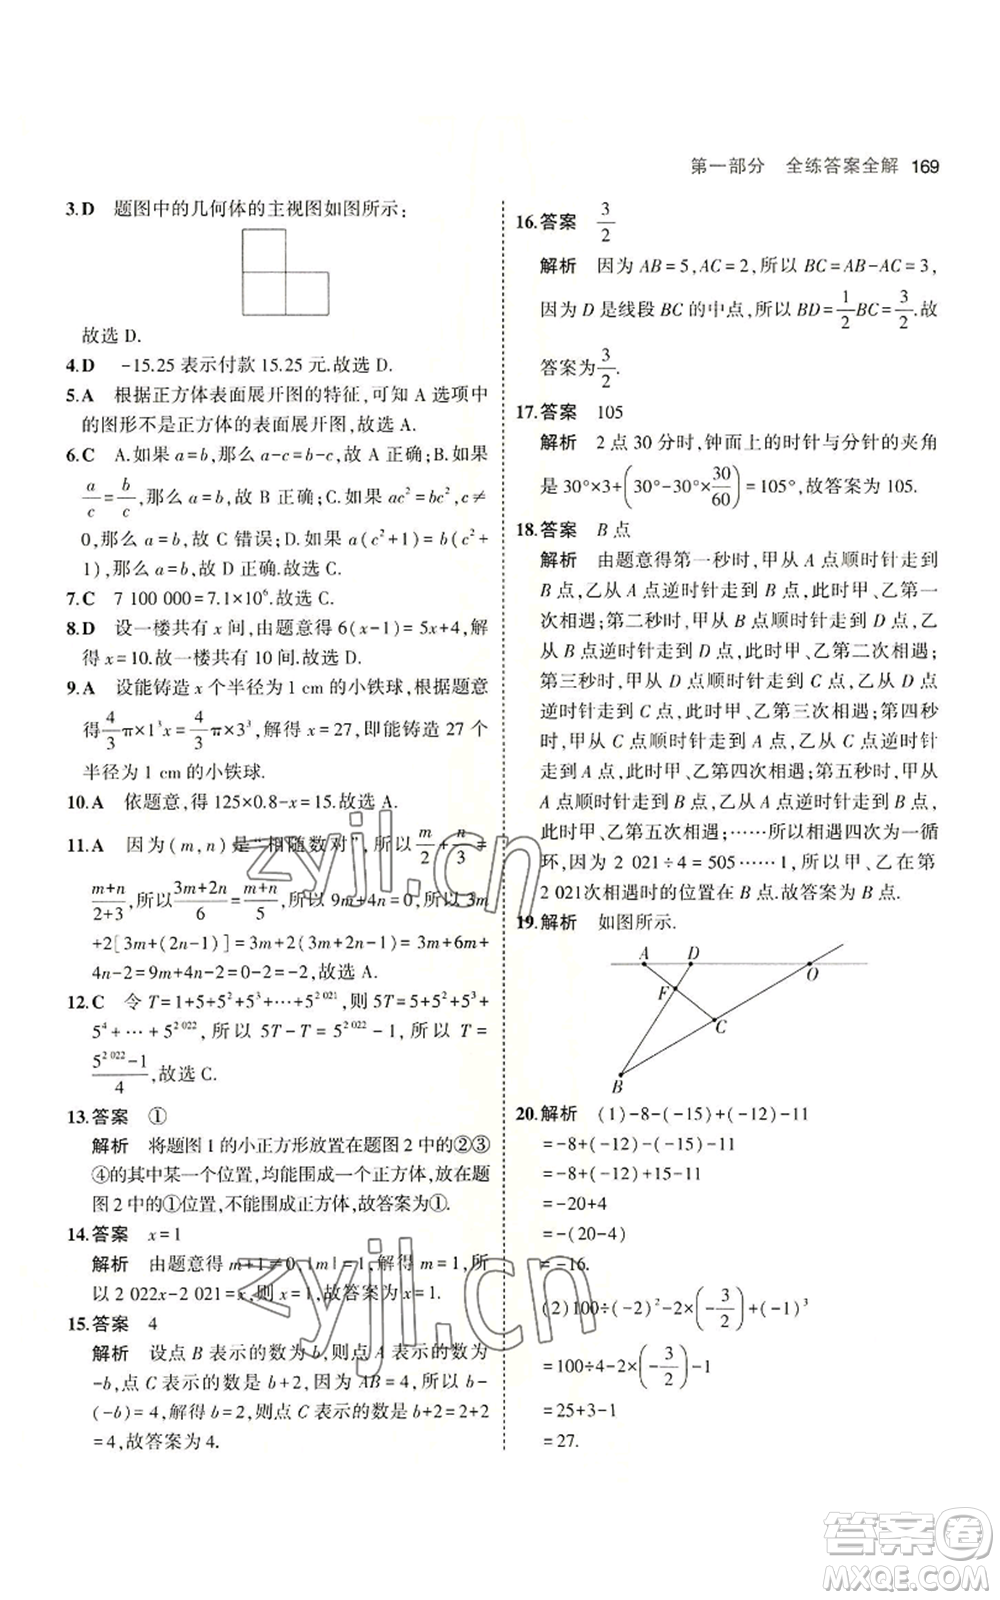 第一部分　全练答案全解　169
3.D　题图中的几何体的主视图如图所示:
故选 D.
4.D　-15.25 表示付款 15.25 元.故选 D.
5.A　根据正方体表面展开图的特征,可知 A 选项中
的图形不是正方体的表面展开图,故选 A.
6.C　A.如果 a=b,那么 a-c=b-c,故 A 正确;B.如果
a/c=b/c,那么 a=b,故 B 正确;C.如果 ac²=bc²,c≠
0,那么 a=b,故 C 错误;D.如果 a(c²+1)=b(c²+
1),那么 a=b,故 D 正确.故选 C.
7.C　7 100 000=7.1×10⁶.故选 C.
8.D　设一楼共有 x 间,由题意得 6(x-1)=5x+4,解
得 x=10.故一楼共有 10 间.故选 D.
9.A　设能铸造 x 个半径为 1 cm 的小铁球,根据题意
得4/3π×1³x=4/3π×3³,解得 x=27,即能铸造 27 个
半径为 1 cm 的小铁球.
10.A　依题意,得 125×0.8-x=15.故选 A.
11.A　因为(m,n)是“相随数对”,所以m/2+n/3=
(m+n)/(2+3),所以(3m+2n)/6=(m+n)/5,所以 9m+4n=0,所以 3m
+2[3m+(2n-1)]=3m+2(3m+2n-1)=3m+6m+
4n-2=9m+4n-2=0-2=-2,故选 A.
12.C　令 T=1+5+5²+5³+…+5²⁰²¹,则 5T=5+5²+5³+
5⁴+…+5²⁰²²,所以 5T-T=5²⁰²²-1,所以 T=
(5²⁰²²-1)/4,故选 C.
13.答案　①
解析　将题图 1 的小正方形放置在题图 2 中的②③
④的其中某一个位置,均能围成一个正方体,放在题
图 2 中的①位置,不能围成正方体,故答案为①.
14.答案　x=1
解析　由题意得 m+1≠0,|m|=1,解得 m=1,所
以 2 022x-2 021=x,则 x=1,故答案为 x=1.
15.答案　4
解析　设点 B 表示的数为 b,则点 A 表示的数为
-b,点 C 表示的数是 b+2,因为 AB=4,所以 b-
(-b)=4,解得 b=2,则点 C 表示的数是 b+2=2+2
=4,故答案为 4.
16.答案　3/2
解析　因为 AB=5,AC=2,所以 BC=AB-AC=3,
因为 D 是线段 BC 的中点,所以 BD=1/2BC=3/2.故
答案为3/2.
17.答案　105
解析　2 点 30 分时,钟面上的时针与分针的夹角
是 30°×3+(30°-30°×30/60)=105°,故答案为 105.
18.答案　B 点
解析　由题意得第一秒时,甲从 A 点顺时针走到
B 点,乙从 A 点逆时针走到 B 点,此时甲、乙第一
次相遇;第二秒时,甲从 B 点顺时针走到 D 点,乙
从 B 点逆时针走到 D 点,此时甲、乙第二次相遇;
第三秒时,甲从 D 点顺时针走到 C 点,乙从 D 点
逆时针走到 C 点,此时甲、乙第三次相遇;第四秒
时,甲从 C 点顺时针走到 A 点,乙从 C 点逆时针
走到 A 点,此时甲、乙第四次相遇;第五秒时,甲从
A 点顺时针走到 B 点,乙从 A 点逆时针走到 B
点,此时甲、乙第五次相遇;……所以四次为一循
环,因为 2 021÷4=505……1,所以甲、乙在第
2 021次相遇时的位置在 B 点.故答案为 B 点.
19.解析　如图所示.
A　D　O
F
C
B
20.解析　(1)-8-(-15)+(-12)-11
=-8+(-12)-(-15)-11
=-8+(-12)+15-11
=-20+4
=-(20-4)
=-16.
(2)100÷(-2)²-2×(-3/2)+(-1)³
=100÷4-2×(-3/2)-1
=25+3-1
=27.
zyjl.cn
zyjl.cn
答案卷
MXQE.COM